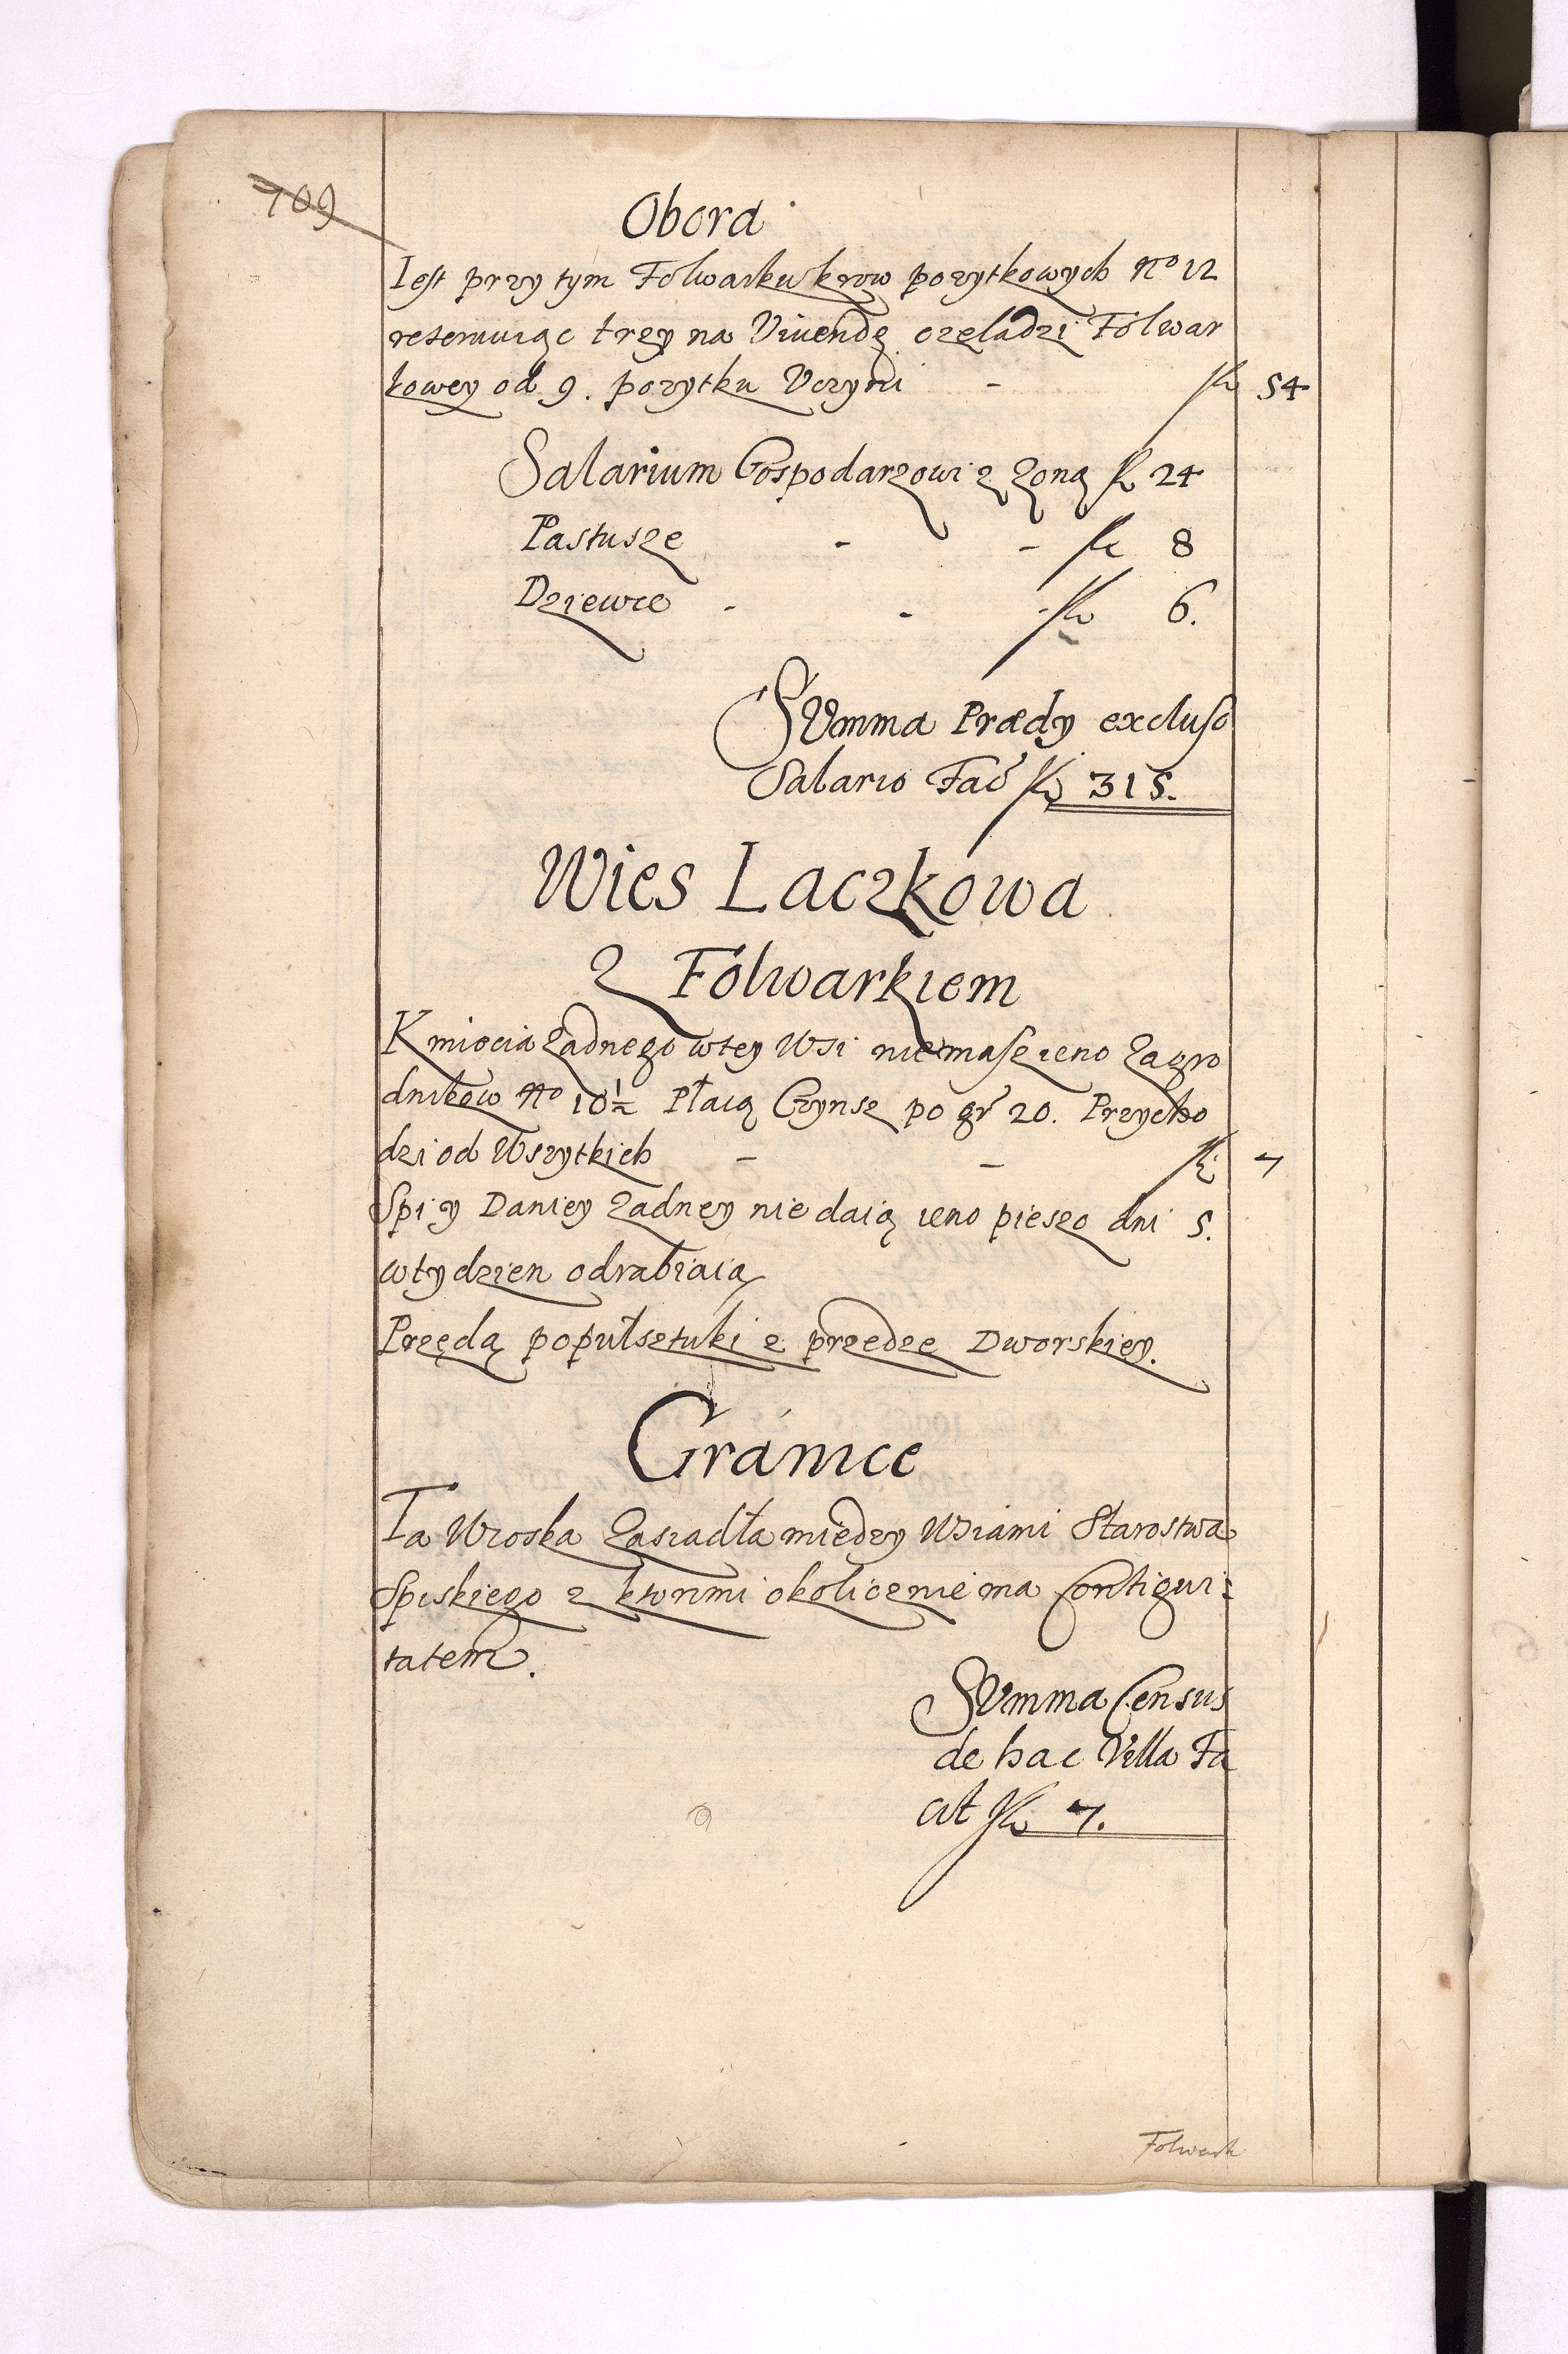 709
Obora
Iest przy tym Folwarku krow pozytkowych No 12
reserwuiąc trzy na Viuendę czeladzi Folwar
kowey od 9. pozytku Vczyni - fl 54
Salarium Gospodarzowi z Zoną fl 24
Pastusze - - fl 8
Dziewce - - fl 6.
SVmma Prædy excluso
Salario Fac fl 315.
Wies Laczkowa
z Folwarkiem
Kmiecia Zadnego wtey Wsi niemasz ieno Zagro
dnikow No 10½ Płacą Czynsz po gr 20. Przycho
dzi od Wszytkich - - fl 7
Spi y Daniey Zadney nie daią ieno pieszo dni 5.
wtydzien odrabiaią
Przędą popułsztuki z przedze Dworskiey.
Gránice
Ta Wioska Zasiadła miedzy Wsiami Starostwa
Spiskiego z ktorimi okolicznie ma Contigui:
tatem.
SVmma Census
de hac Villa Fa
cit fl 7.
Folwark